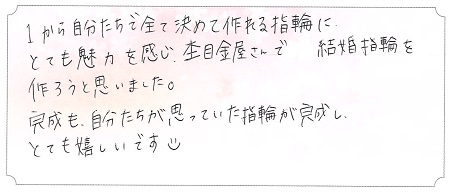 1から自分たちで全て決めて作れる指輪に、
とても魅力を感じ、杢目金屋さんで 結婚指輪を
作ろうと思いました。
完成も、自分たちが思っていた指輪が完成し、
とても嬉しいです